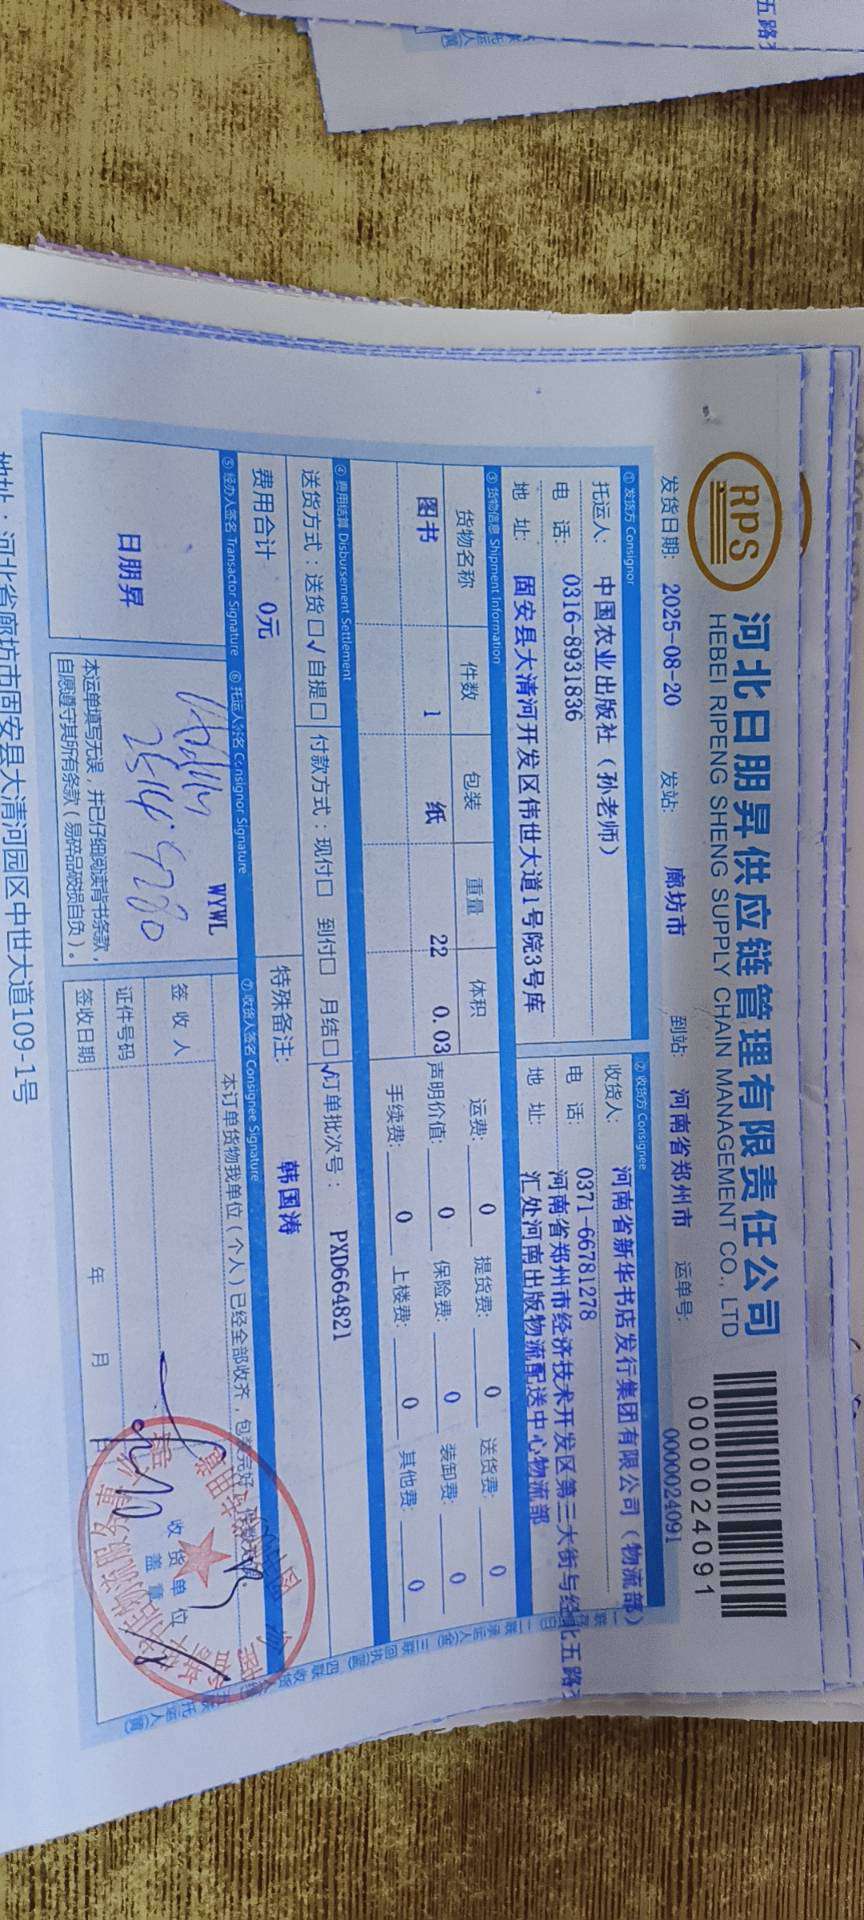 RPS
河北日朋昇供应链管理有限责任公司
HEBEI RIPENG SHENG SUPPLY CHAIN MANAGEMENT CO., LTD
0000024091
发货日期: 2025-08-20 发站: 廊坊市 到站: 河南省郑州市 运单号: 0000024091
① 发货方 Consignor
② 收货方 Consignee
托运人: 中国农业出版社（孙老师）
收货人: 河南省新华书店发行集团有限公司（物流部）
电 话: 0316-8931836
电 话: 0371-66781278
地 址: 固安县大清河开发区伟世大道1号院3号库
地 址: 河南省郑州市经济技术开发区第三大街与经北五路交
汇处河南出版物流配送中心物流部
③ 货物信息 Shipment Information
货物名称 件数 包装 重量 体积
图书 1 纸 22 0.03
运费: 0 提货费: 0 送货费: 0
声明价值: 0 保险费: 0 装卸费: 0
手续费: 0 上楼费: 0 其他费: 0
④ 费用结算 Disbursement Settlement
送货方式：送货□√ 自提□ 付款方式：现付□ 到付□ 月结□√ 订单批次号： PXD664821
费用合计 0元
特殊备注: 韩国涛
⑤ 经办人签名 Transactor Signature ⑥ 托运人签名 Consignor Signature ⑦ 收货人签名 Consignee Signature
日朋昇
WYWL
本运单填写无误，并已仔细阅读背书条款，
自愿遵守其所有条款（易碎品破损自负）。
本订单货物我单位（个人）已经全部收齐，包装完好
签 收 人
证件号码
签收日期 年 月 日
收货单位
盖章
地址：河北省廊坊市固安县大清河园区中世大道109-1号
五路交